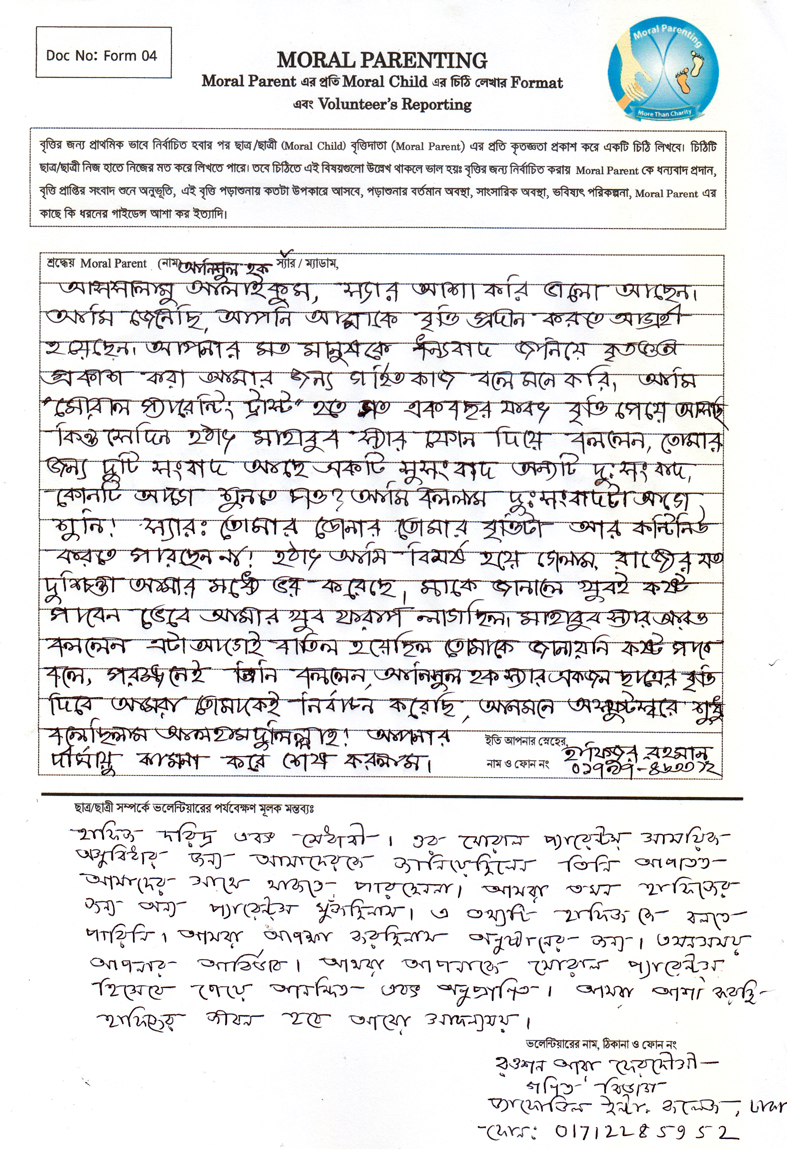 Doc No: Form 04
MORAL PARENTING
Moral Parent এর প্রতি Moral Child এর চিঠি লেখার Format
এবং Volunteer's Reporting
Moral Parenting
More Than Charity
বৃত্তির জন্য প্রাথমিক ভাবে নির্বাচিত হবার পর ছাত্র/ছাত্রী (Moral Child) বৃত্তিদাতা (Moral Parent) এর প্রতি কৃতজ্ঞতা প্রকাশ করে একটি চিঠি লিখবে। চিঠিটি
ছাত্র/ছাত্রী নিজ হাতে নিজের মত করে লিখতে পারে। তবে চিঠিতে এই বিষয়গুলো উল্লেখ থাকলে ভাল হয়ঃ বৃত্তির জন্য নির্বাচিত করায় Moral Parent কে ধন্যবাদ প্রদান,
বৃত্তি প্রাপ্তির সংবাদ শুনে অনুভূতি, এই বৃত্তি পড়াশুনায় কতটা উপকারে আসবে, পড়াশুনার বর্তমান অবস্থা, সাংসারিক অবস্থা, ভবিষ্যৎ পরিকল্পনা, Moral Parent এর
কাছে কি ধরনের গাইডেন্স আশা কর ইত্যাদি।
শ্রদ্ধেয় Moral Parent (নাম আনিসুল হক স্যার / ম্যাডাম,
আসসালামু আলাইকুম, স্যার আশা করি ভালো আছেন।
আমি জেনেছি, আপনি আমাকে বৃত্তি প্রদান করতে আগ্রহী
হয়েছেন। আপনার মত মানুষকে ধন্যবাদ জানিয়ে কৃতজ্ঞতা
প্রকাশ করা আমার জন্য গর্হিত কাজ বলে মনে করি, আমি
"মোরাল প্যারেন্টিং ট্রাস্ট" হতে গত একবছর যাবৎ বৃত্তি পেয়ে আসছি
কিন্তু সেদিন হঠাৎ মাহাবুব স্যার ফোন দিয়ে বললেন, তোমার
জন্য দুটি সংবাদ আছে একটি সুসংবাদ অন্যটি দু:সংবাদ,
কোনটি আগে শুনতে চাও? আমি বললাম দু:সংবাদটা আগে
শুনি! স্যার: তোমার ডোনার তোমার বৃত্তিটা আর কন্টিনিউ
করতে পারছেন না! হঠাৎ আমি বিমর্ষ হয়ে গেলাম, রাজ্যের যত
দুশ্চিন্তা আমার মধ্যে ভর করেছে, মাকে জানালে খুবই কষ্ট
পাবেন ভেবে আমার খুব খারাপ লাগছিল। মাহাবুব স্যার আরও
বললেন এটা আগেই বাতিল হয়েছিল তোমাকে জানায়নি কষ্ট পাবে
বলে, পরক্ষনেই তিনি বললেন, আনিসুল হক স্যার একজন ছাত্রের বৃত্তি
দিবে আমরা তোমাকেই নির্বাচন করেছি, আনমনে অস্ফুটস্বরে শুধু
বলেছিলাম আলহামদুলিল্লাহ! আপনার
দীর্ঘায়ু কামনা করে শেষ করলাম।
ইতি আপনার স্নেহের,
নাম ও ফোন নং হাফিজুর রহমান
ছাত্র/ছাত্রী সম্পর্কে ভলেন্টিয়ারের পর্যবেক্ষণ মূলক মন্তব্যঃ
হাফিজ দরিদ্র এবং মেধাবী। ওর মোরাল প্যারেন্টস সাময়িক
অসুবিধার জন্য আমাদেরকে জানিয়েছিলেন তিনি আপাতত
আমাদের সাথে থাকতে পারছেননা। আমরা তখন হাফিজের
জন্য অন্য প্যারেন্টস খুঁজছিলাম। এ তথ্যটি হাফিজকে বলতে
পারিনি। আমরা অপেক্ষা করছিলাম অনুষ্ঠানের জন্য। তখনসময়
আপনার আবির্ভাব। আমরা আপনাকে মোরাল প্যারেন্টস
হিসেবে পেয়ে আনন্দিত এবং অনুপ্রাণিত। আমরা আশা করছি
হাফিজের জীবন হবে আরো আনন্দময়।
ভলেন্টিয়ারের নাম, ঠিকানা ও ফোন নং
রওশন আরা ফেরদৌসী
গণিত বিভাগ
ইন্টা. কলেজ, ঢাকা
ফোন: 01712285952